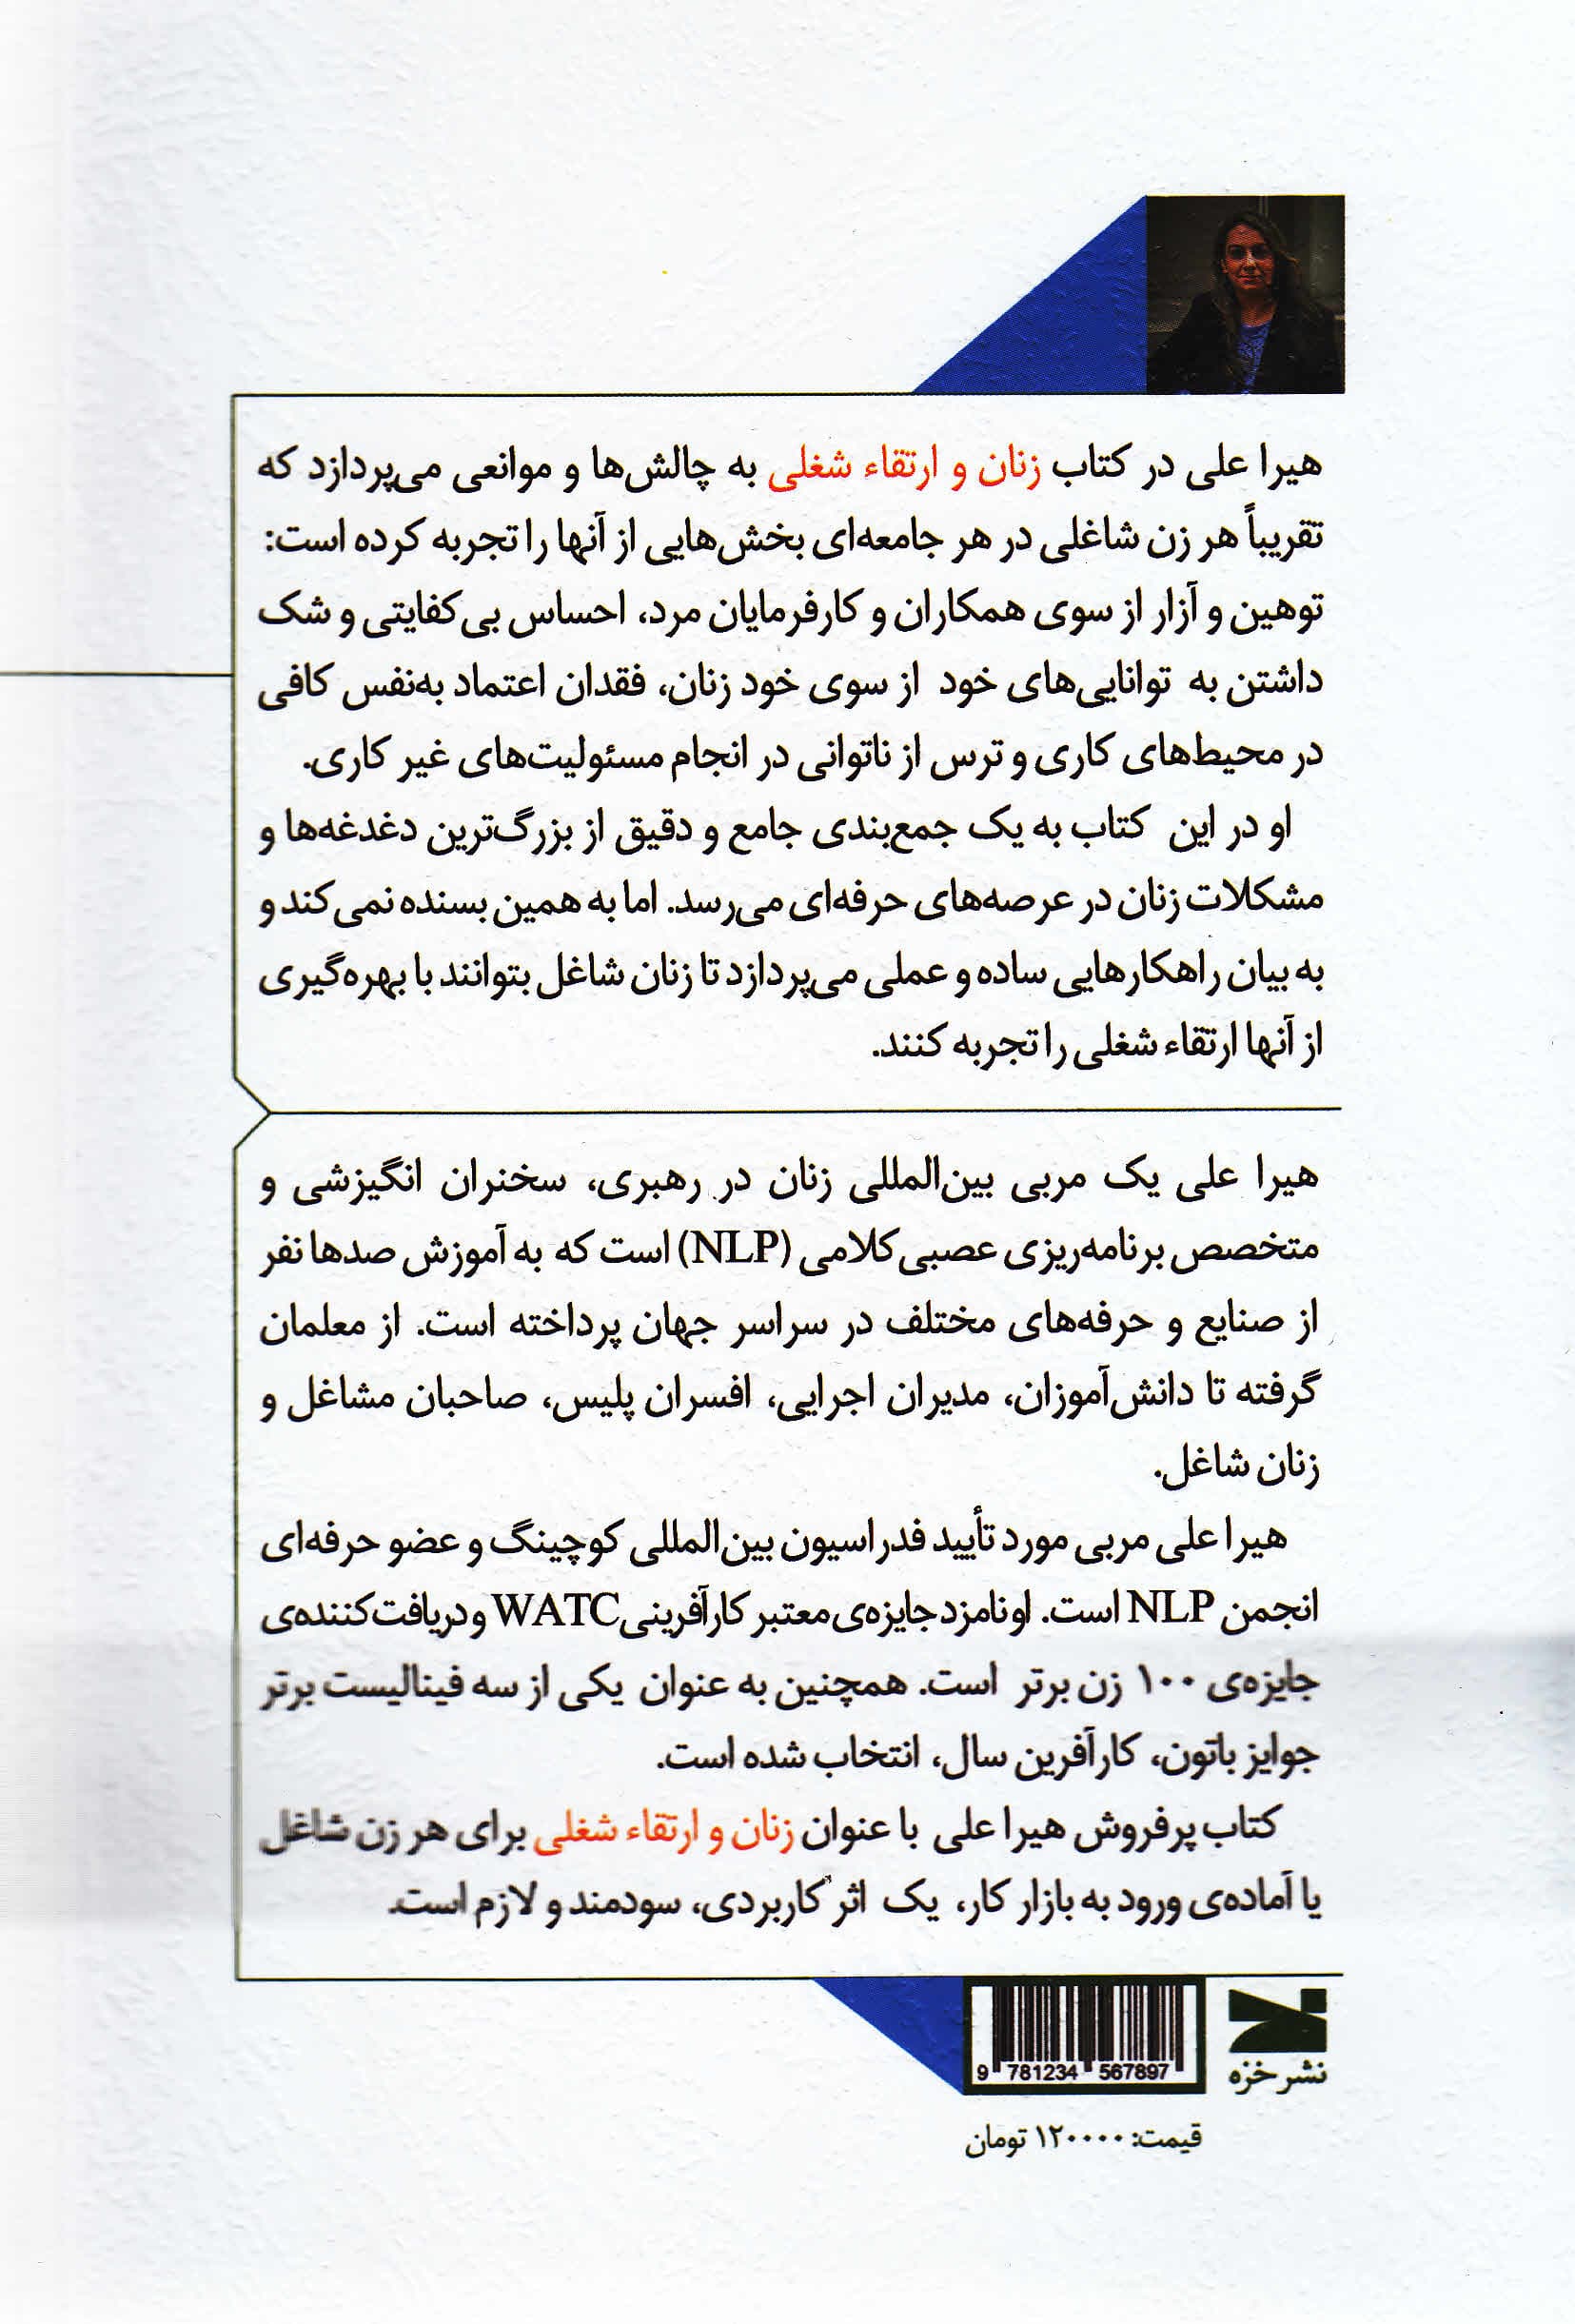 هیرا علی در کتاب زنان و ارتقاء شغلی به چالش‌ها و موانعی می‌پردازد که
تقریباً هر زن شاغلی در هر جامعه‌ای بخش‌هایی از آنها را تجربه کرده است:
توهین و آزار از سوی همکاران و کارفرمایان مرد، احساس بی‌کفایتی و شک
داشتن به توانایی‌های خود از سوی خود زنان، فقدان اعتماد به‌نفس کافی
در محیط‌های کاری و ترس از ناتوانی در انجام مسئولیت‌های غیر کاری.
او در این کتاب به یک جمع‌بندی جامع و دقیق از بزرگ‌ترین دغدغه‌ها و
مشکلات زنان در عرصه‌های حرفه‌ای می‌رسد. اما به همین بسنده نمی‌کند و
به بیان راهکارهایی ساده و عملی می‌پردازد تا زنان شاغل بتوانند با بهره‌گیری
از آنها ارتقاء شغلی را تجربه کنند.
هیرا علی یک مربی بین‌المللی زنان در رهبری، سخنران انگیزشی و
متخصص برنامه‌ریزی عصبی‌کلامی (NLP) است که به آموزش صدها نفر
از صنایع و حرفه‌های مختلف در سراسر جهان پرداخته است. از معلمان
گرفته تا دانش‌آموزان، مدیران اجرایی، افسران پلیس، صاحبان مشاغل و
زنان شاغل.
هیرا علی مربی مورد تأیید فدراسیون بین‌المللی کوچینگ و عضو حرفه‌ای
انجمن NLP است. او نامزد جایزه‌ی معتبر کارآفرینی WATC و دریافت‌کننده‌ی
جایزه‌ی ۱۰۰ زن برتر است. همچنین به عنوان یکی از سه فینالیست برتر
جوایز باتون، کارآفرین سال، انتخاب شده است.
کتاب پرفروش هیرا علی با عنوان زنان و ارتقاء شغلی برای هر زن شاغل
یا آماده‌ی ورود به بازار کار، یک اثر کاربردی، سودمند و لازم است.
9 781234 567897
نشر خزه
قیمت: ۱۲۰۰۰۰ تومان